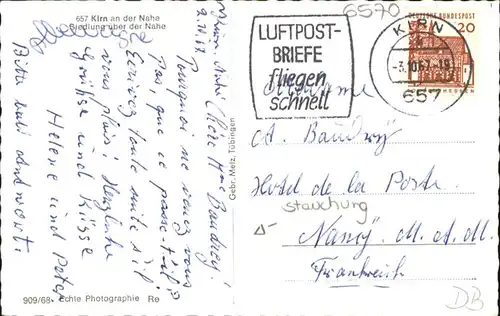 657 Kirn an der Nahe
Siedlung über der Nahe
2.10.67
Chère Mme Baudry!
Pourquoi ne venez vous
pas, que ce passe-t-il?
Ecrivez toute suite s'il
vous plais! Herzliche
Grüsse und Küsse
Helene und Peter
Bitte bald Antwort.
909/68 Echte Photographie Re
Gebr. Metz, Tübingen
6570
LUFTPOST-
BRIEFE
fliegen
schnell
KIRN
-3.10.67-18
657
DEUTSCHE BUNDESPOST
20
Madame
A. Baudry
Hotel de la Poste
Stauchung
Nancy. M. A. M.
Frankreich
DB